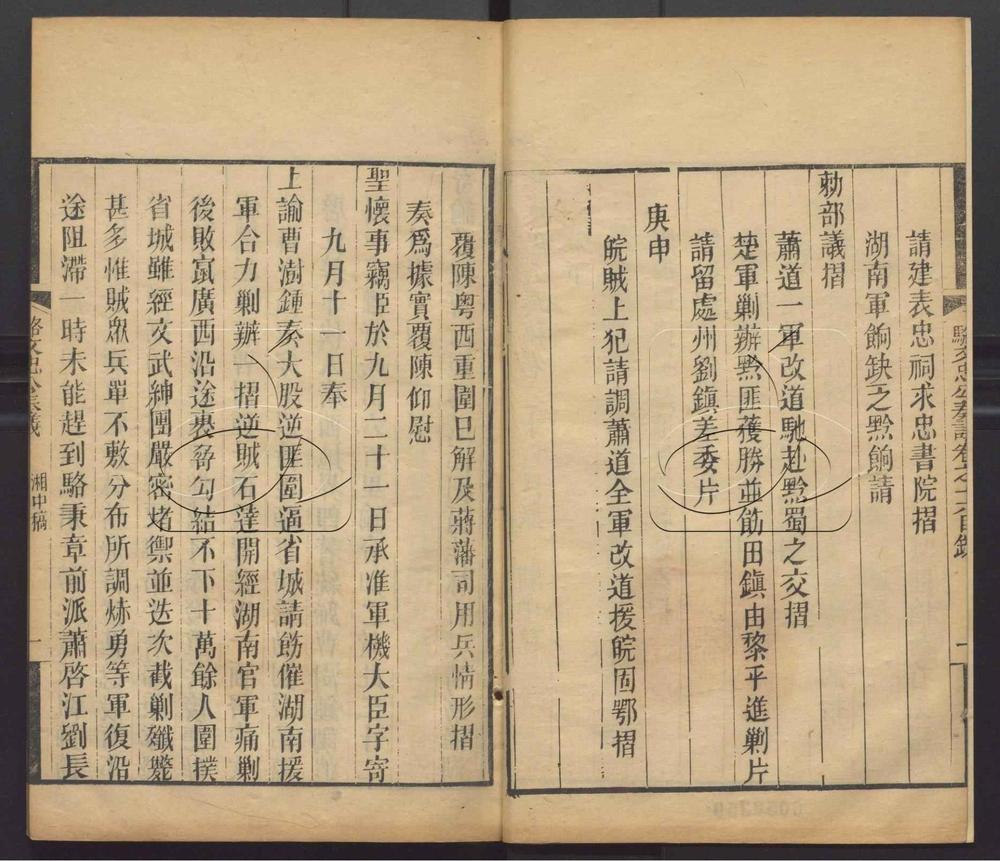 請建表忠祠求忠書院摺
湖南軍餉缺乏之黔餉請
勅部議摺
蕭道一軍改道馳赴黔蜀之交摺
楚軍剿辦黔匪獲勝並飭田鎮由黎平進剿片
請留處州劉鎮差委片
庚申
皖賊上犯請調蕭道全軍改道援皖固鄂摺
覆陳粵西重圍已解及蔣藩司用兵情形摺
奏爲據實覆陳仰慰
聖懷事竊臣於九月二十一日承准軍機大臣字寄
九月十一日奉
上諭曹澍鍾奏大股逆匪圍逼省城請飭催湖南援
軍合力剿辦一摺逆賊石達開經湖南官軍痛剿
後敗竄廣西沿途裹脅勾結不下十萬餘人圍撲
省城雖經文武紳團嚴密堵禦並迭次截剿殲斃
甚多惟賊眾兵單不敷分布所調㷂勇等軍復沿
途阻滯一時未能趕到駱秉章前派蕭啓江劉長
湘中稿
一